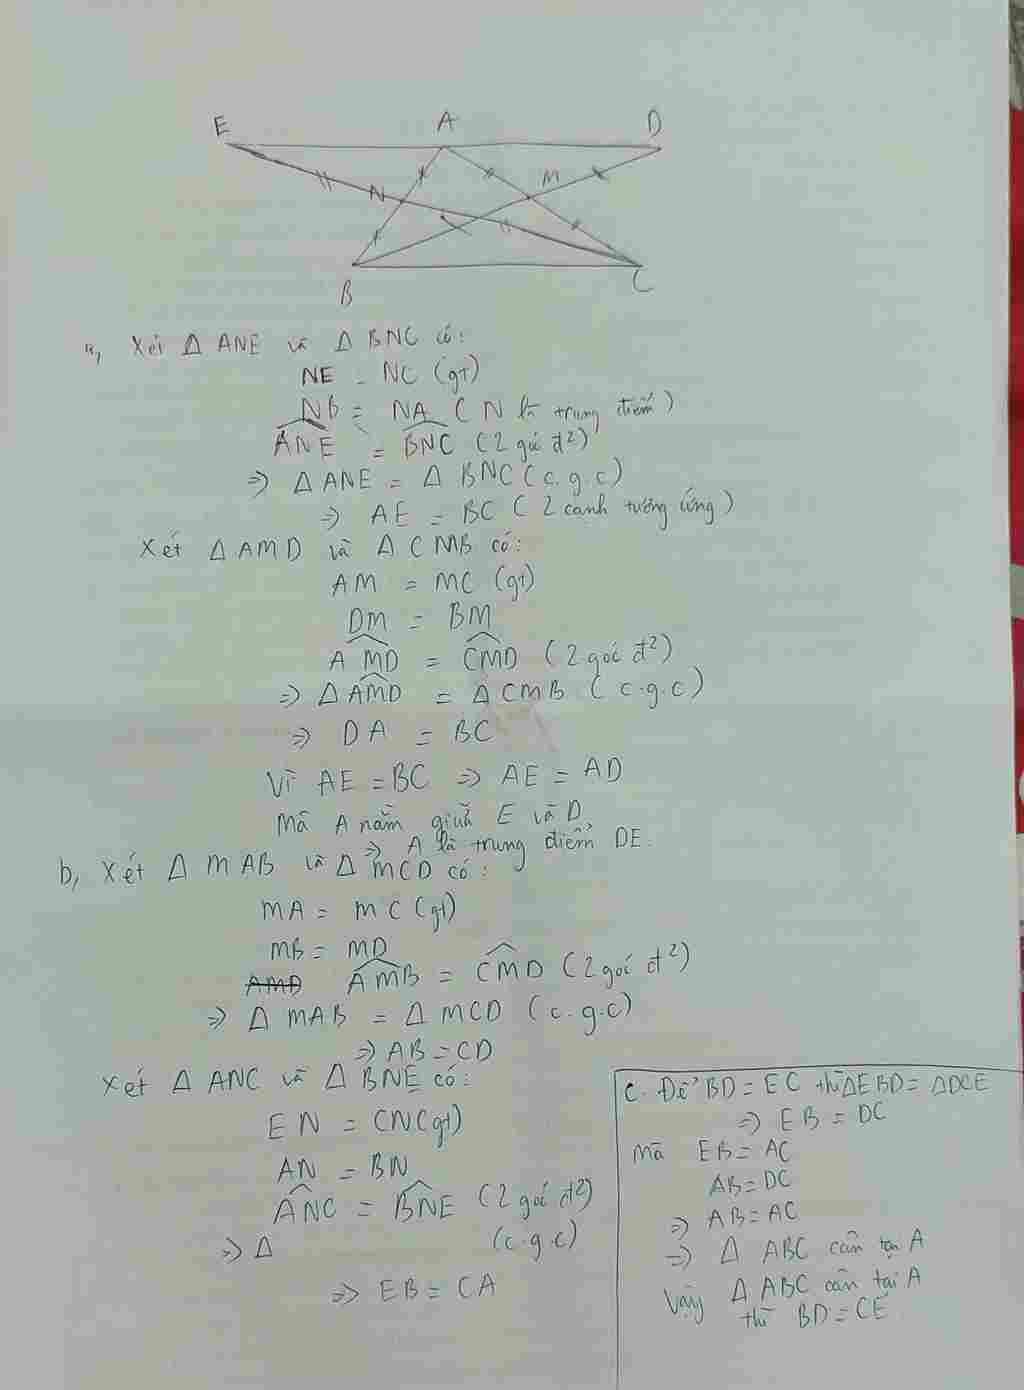 E A D
N M
B C
a, Xét Δ ANE và Δ BNC có:
NE = NC (gt)
NB = NA (N là trung điểm)
ANE = BNC (2 góc đ²)
=> Δ ANE = Δ BNC (c.g.c)
=> AE = BC (2 cạnh tương ứng)
Xét Δ AMD và Δ CMB có:
AM = MC (gt)
DM = BM
AMD = CMD (2 góc đ²)
=> Δ AMD = Δ CMB (c.g.c)
=> DA = BC
Vì AE = BC => AE = AD
Mà A nằm giữa E và D
=> A là trung điểm DE.
b, Xét Δ MAB và Δ MCD có:
MA = MC (gt)
MB = MD
AMD AMB = CMD (2 góc đ²)
=> Δ MAB = Δ MCD (c.g.c)
=> AB = CD
Xét Δ ANC và Δ BNE có:
EN = CN (gt)
AN = BN
ANC = BNE (2 góc đ²)
=> Δ (c.g.c)
=> EB = CA
c. Để BD = EC thì ΔEBD = ΔDCE
=> EB = DC
Mà EB = AC
AB = DC
=> AB = AC
=> Δ ABC cân tại A
Vậy Δ ABC cân tại A
thì BD = CE